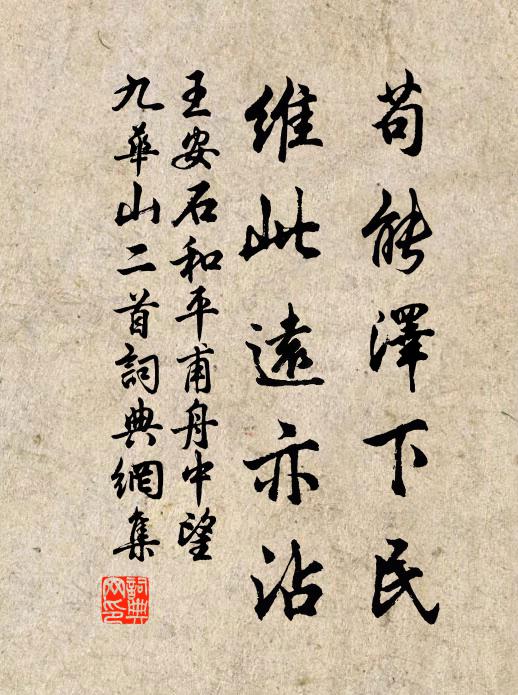 苟能澤下民
維此遠亦沾
王安石和平甫舟中望
九華山二首詞典網集
詞典
网印